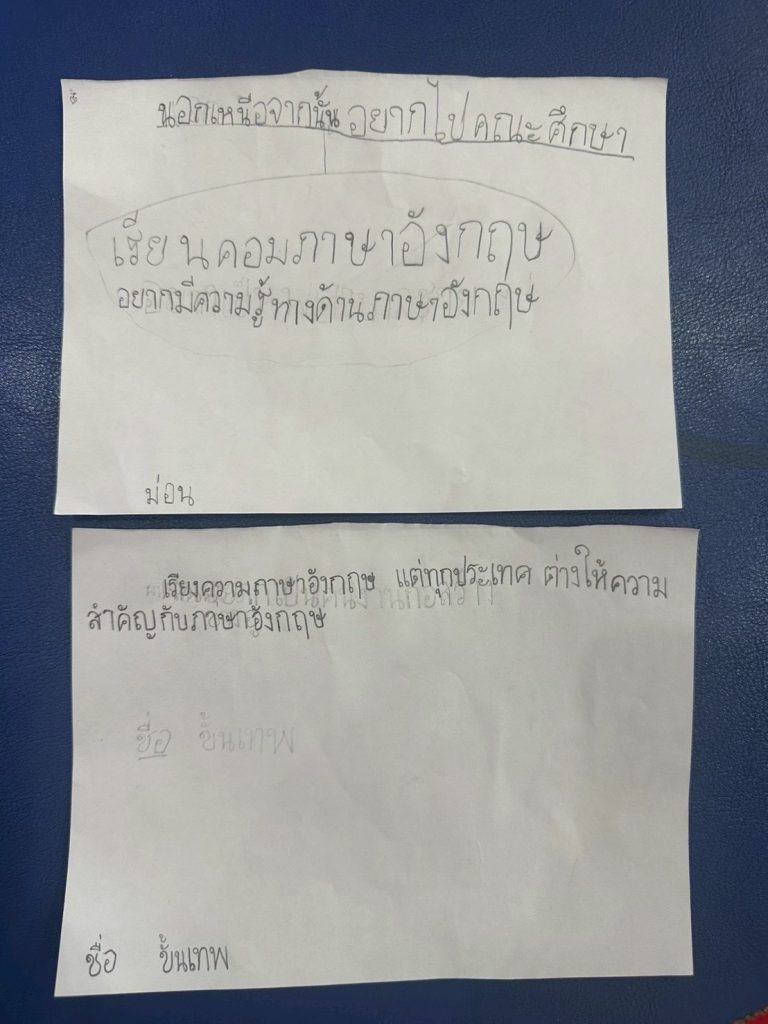 นอกเหนือจากนั้น อยากไปคณะศึกษา
เรียนคอมภาษาอังกฤษ
อยากมีความรู้ทางด้านภาษาอังกฤษ
ม่อน
เรียงความภาษาอังกฤษ แต่ทุกประเทค ต่างให้ความ
สำคัญกับภาษาอังกฤษ
ชื่อ ขั้นเทพ
ชื่อ ขั้นเทพ